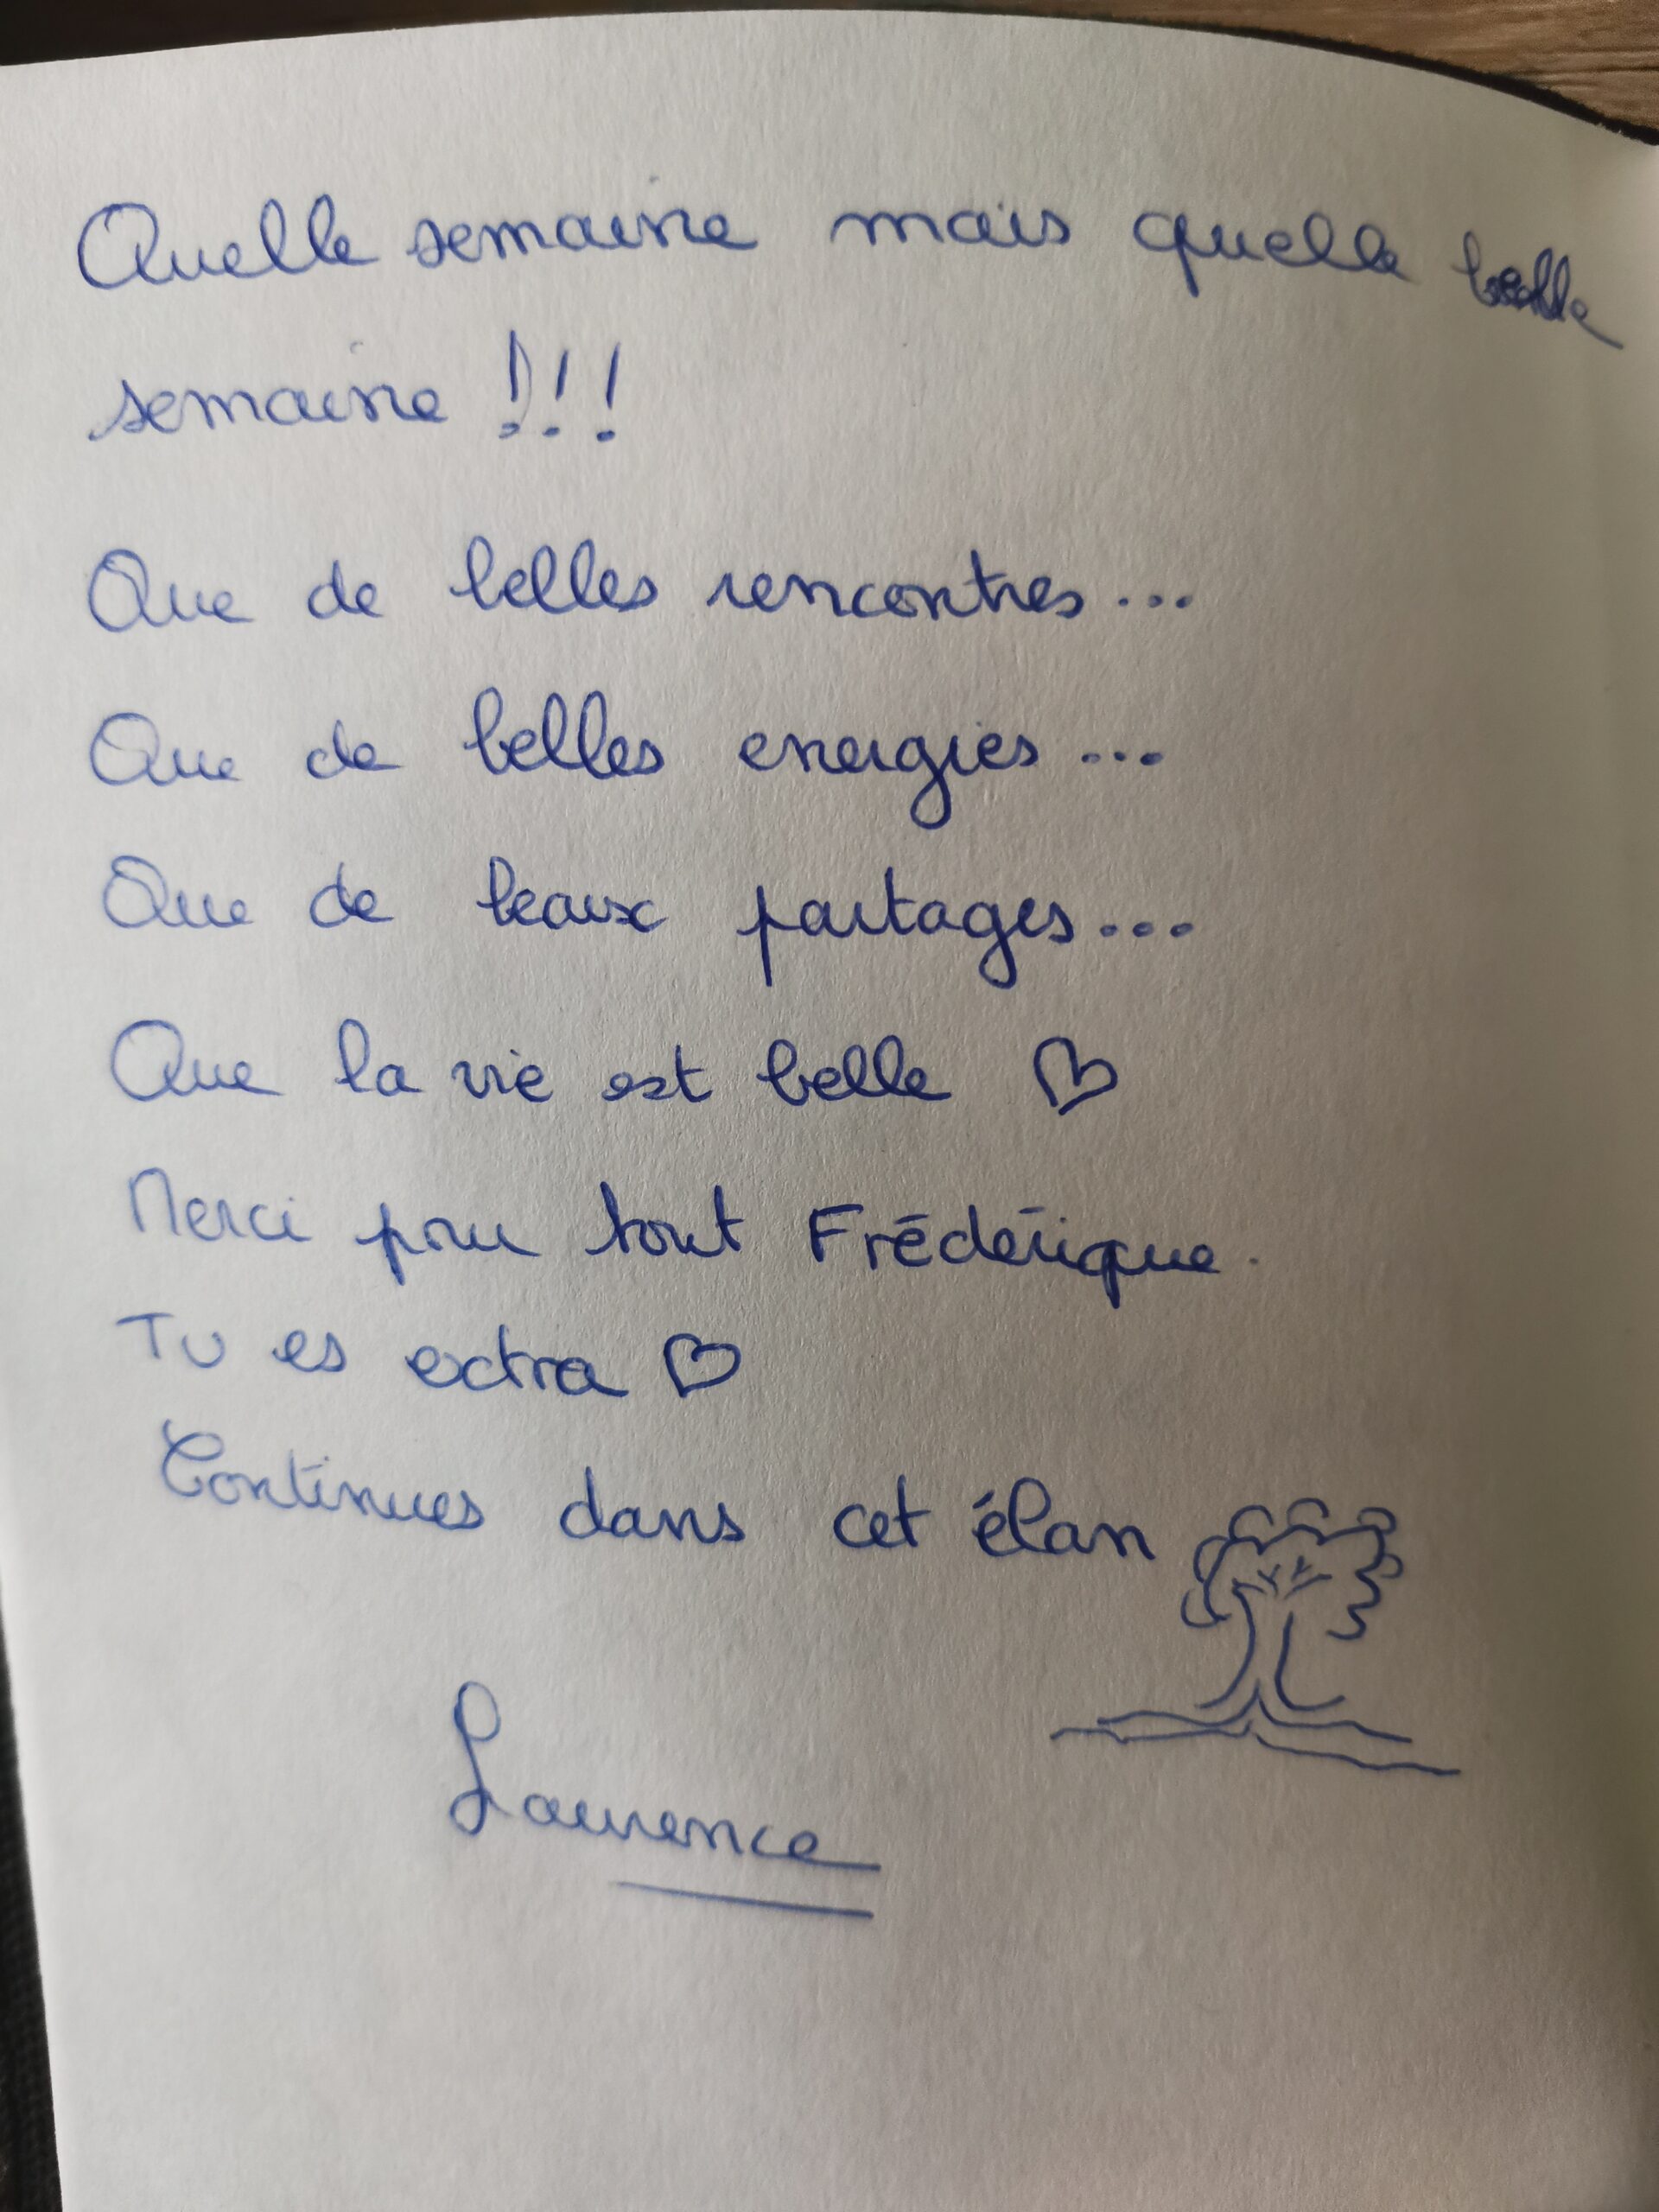 Quelle semaine mais quelle belle
semaine !!!
Que de belles rencontres...
Que de belles energies...
Que de beaux partages...
Que la vie est belle ♡
Merci pour tout Frédérique.
Tu es extra ♡
Continues dans cet élan
Laurence